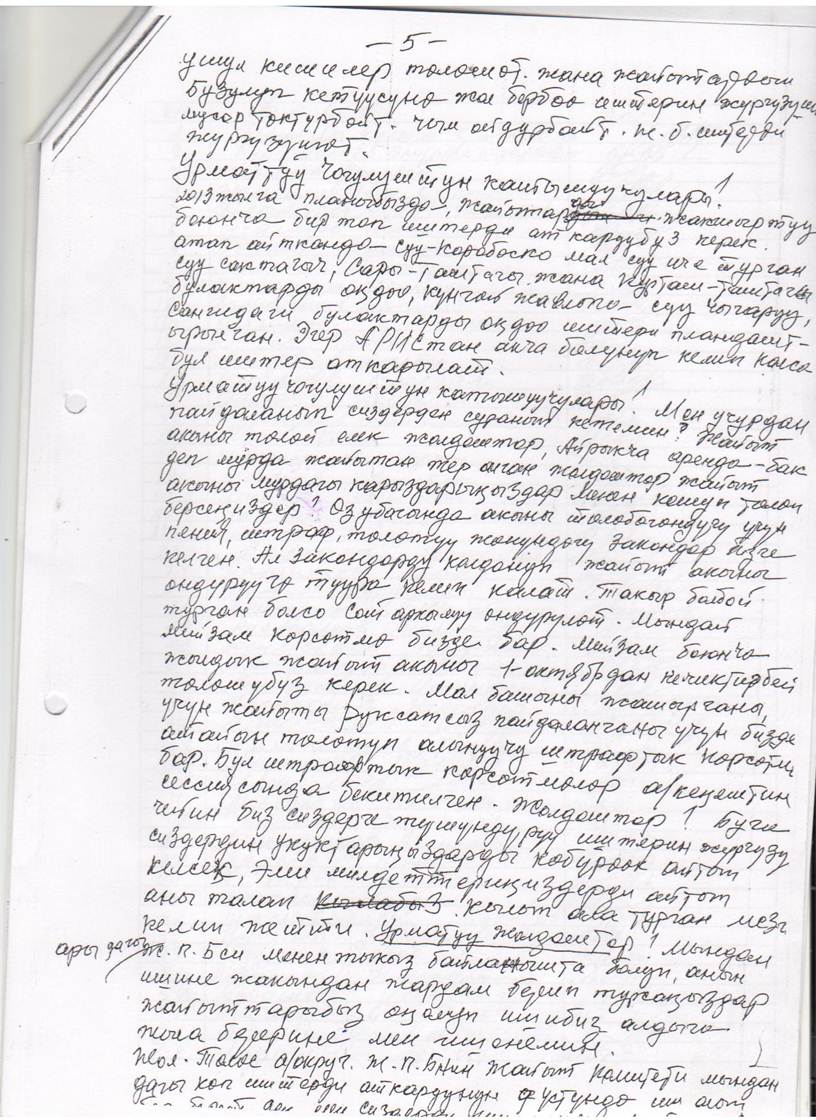 - 5 -
ушул кишилер төлөшөт. жана жайыттардын
бузулуп кетүүсүнө жол бербөө иштерин жүргүзүшөт
мусор төктүрбөйт. чым ойдурбайт. ж.б. иштерди
жүргүзүшөт.
Урматтуу чогулуштун катышуучулары!
2013 жылга планыбызда, жайыттарды жакшыртуу
боюнча бир топ иштерди аткардубуз керек.
атап айтканда суу-Коробоско мал суу иче турган
суу сактагыч, Сары-Таштагы жана Курташ-Таштагы
булактарды оңдоо, күнгөй суу чыгаруу,
булактарды оңдоо иштери пландашт-
ырылган. Эгер АРИСтан акча бөлүнүп келип калса
бул иштер аткарылат.
Урматуу чогулуштун катышуучулары! Мен учурдан
пайдаланып сиздерден суранып кетемин? Жайыт
акыны төлөй элек жолдоштор, Айрыкча аренда-бак
деп мурда жайытан жер алган жолдоштор жайыт
акыны мурдагы карыздарыңыздар менен кошуп төлөп
берсеңиздер? Өз убагында акыны төлөбөгөндүгү үчүн
пеня, штраф, төлөтүү жөнүндөгү Закондор бизге
келген. Ал Закондорду колдонуп жайыт акыны
өндүрүүгө туура келип калат. Такыр болбой
турган болсо сот аркылуу өндүрүлөт. Мындай
Мыйзам көрсөтмө бизде бар. Мыйзам боюнча
жылдык жайыт акыны 1-октябрдан кечиктирбей
төлөшүбүз керек. Мал башыны жашырганы,
үчүн жайыты Руксатсыз пайдаланганы үчүн бизде
атайын төлөтүп алынуучу штрафтык көрсөтмө
бар. Бул штрафтык көрсөтмөлөр а/кеңештин
сессиясында бекитилген. Жолдоштор! Бүгүнкү
чейин биз сиздерге түшүндүрүү иштерин жүргүзүп
сиздердин укуктарыңыздарды көбүрөөк айтып
келсек, Эми милдеттериңиздерди айтып
аны талап кылабыз кылып ала турган мезг
келип жетти. Урматуу жолдоштор! Мындан
ары дагы Ж.П.Бси менен тыкыз байланышта болуп, анын
ишине жакындан жардам берип турсаңыздар
жайыттарыбыз оңолуп ишибиз алдыга
жыла берерине мен ишенемин.
а/округ. Ж.П.Бнин Жайыт Комитети мындан
дагы көп иштерди аткаруунун үстүндө